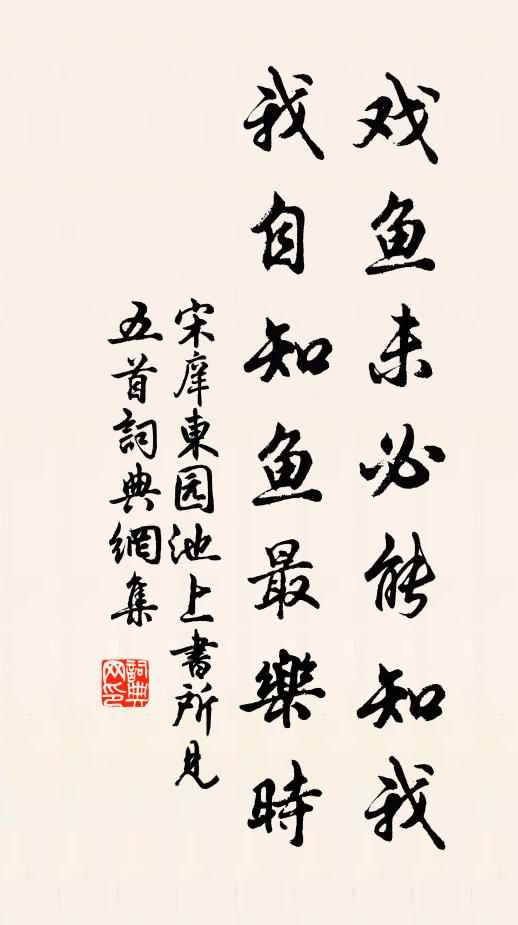 戏鱼未必能知我
我自知鱼最樂時
宋庠東园池上書所見
五首詞典網集
詞典网印